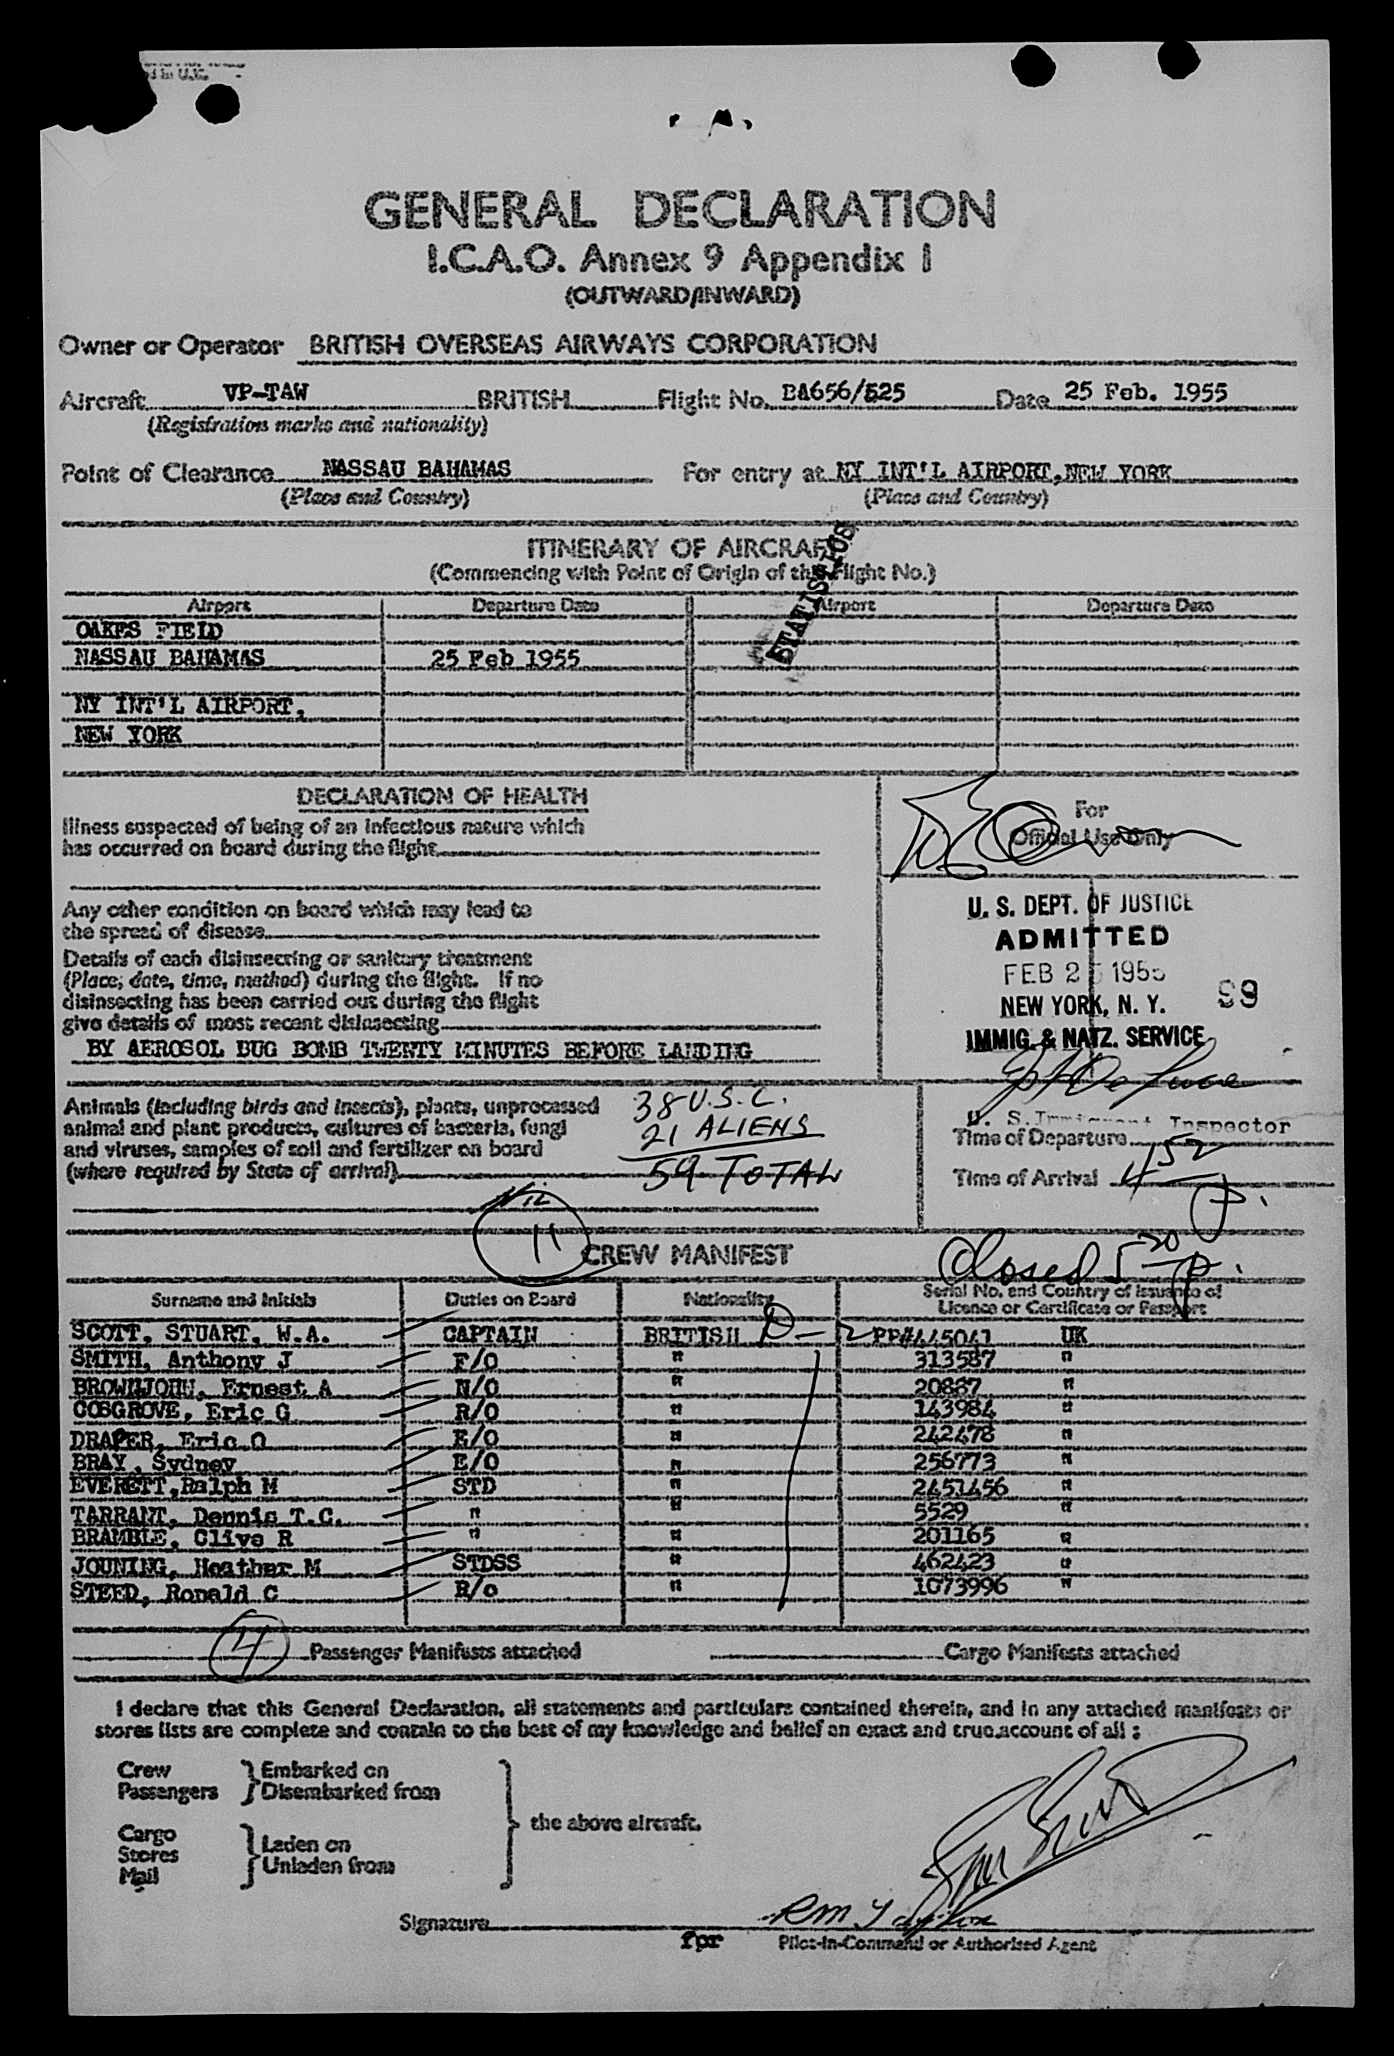 d in U.K.
GENERAL DECLARATION
I.C.A.O. Annex 9 Appendix 1
(OUTWARD/INWARD)
Owner or Operator BRITISH OVERSEAS AIRWAYS CORPORATION
Aircraft VP-TAW BRITISH Flight No. BA656/525 Date 25 Feb. 1955
(Registration marks and nationality)
Point of Clearance NASSAU BAHAMAS For entry at NY INT'L AIRPORT, NEW YORK
(Place and Country) (Place and Country)
ITINERARY OF AIRCRAFT
(Commencing with Point of Origin of this Flight No.)
STATISTICS
Airport Departure Date Airport Departure Date
OAKES FIELD
NASSAU BAHAMAS 25 Feb 1955
NY INT'L AIRPORT,
NEW YORK
DECLARATION OF HEALTH
Illness suspected of being of an infectious nature which
has occurred on board during the flight
Any other condition on board which may lead to
the spread of disease
Details of each disinsecting or sanitary treatment
(Place, date, time, method) during the flight. If no
disinsecting has been carried out during the flight
give details of most recent disinsecting
BY AEROSOL BUG BOMB TWENTY MINUTES BEFORE LANDING
For
Official Use Only
U. S. DEPT. OF JUSTICE
ADMITTED
FEB 25 1955
NEW YORK, N. Y. 99
IMMIG. & NATZ. SERVICE
U. S. Immigrant Inspector
Animals (including birds and insects), plants, unprocessed
animal and plant products, cultures of bacteria, fungi
and viruses, samples of soil and fertilizer on board
(where required by State of arrival)
38 U.S.C.
21 ALIENS
59 TOTAL
NIL
Time of Departure
Time of Arrival 4 52 P.
11
CREW MANIFEST
Closed 5 20 P.
Surname and Initials Duties on Board Nationality Serial No. and Country of Issuance of
Licence or Certificate or Passport
SCOTT, STUART, W.A. CAPTAIN BRITISH D-2 PP#445041 UK
SMITH, Anthony J F/O " 313587 "
BROWNJOHN, Ernest A N/O " 20887 "
COSGROVE, Eric G R/O " 143984 "
DRAPER, Eric O E/O " 242478 "
BRAY, Sydney E/O " 256773 "
EVERETT, Ralph M STD " 2451456 "
TARRANT, Dennis T.C. " " 5529 "
BRAMBLE, Clive R " " 201165 "
JOUNING, Heather M STDSS " 462423 "
STEED, Ronald C R/o " 1073996 "
4 Passenger Manifests attached Cargo Manifests attached
I declare that this General Declaration, all statements and particulars contained therein, and in any attached manifests or
stores lists are complete and contain to the best of my knowledge and belief an exact and true account of all :
Crew } Embarked on
Passengers } Disembarked from
the above aircraft.
Cargo
Stores } Laden on
Mail } Unladen from
Signature
for Pilot-in-Command or Authorised Agent